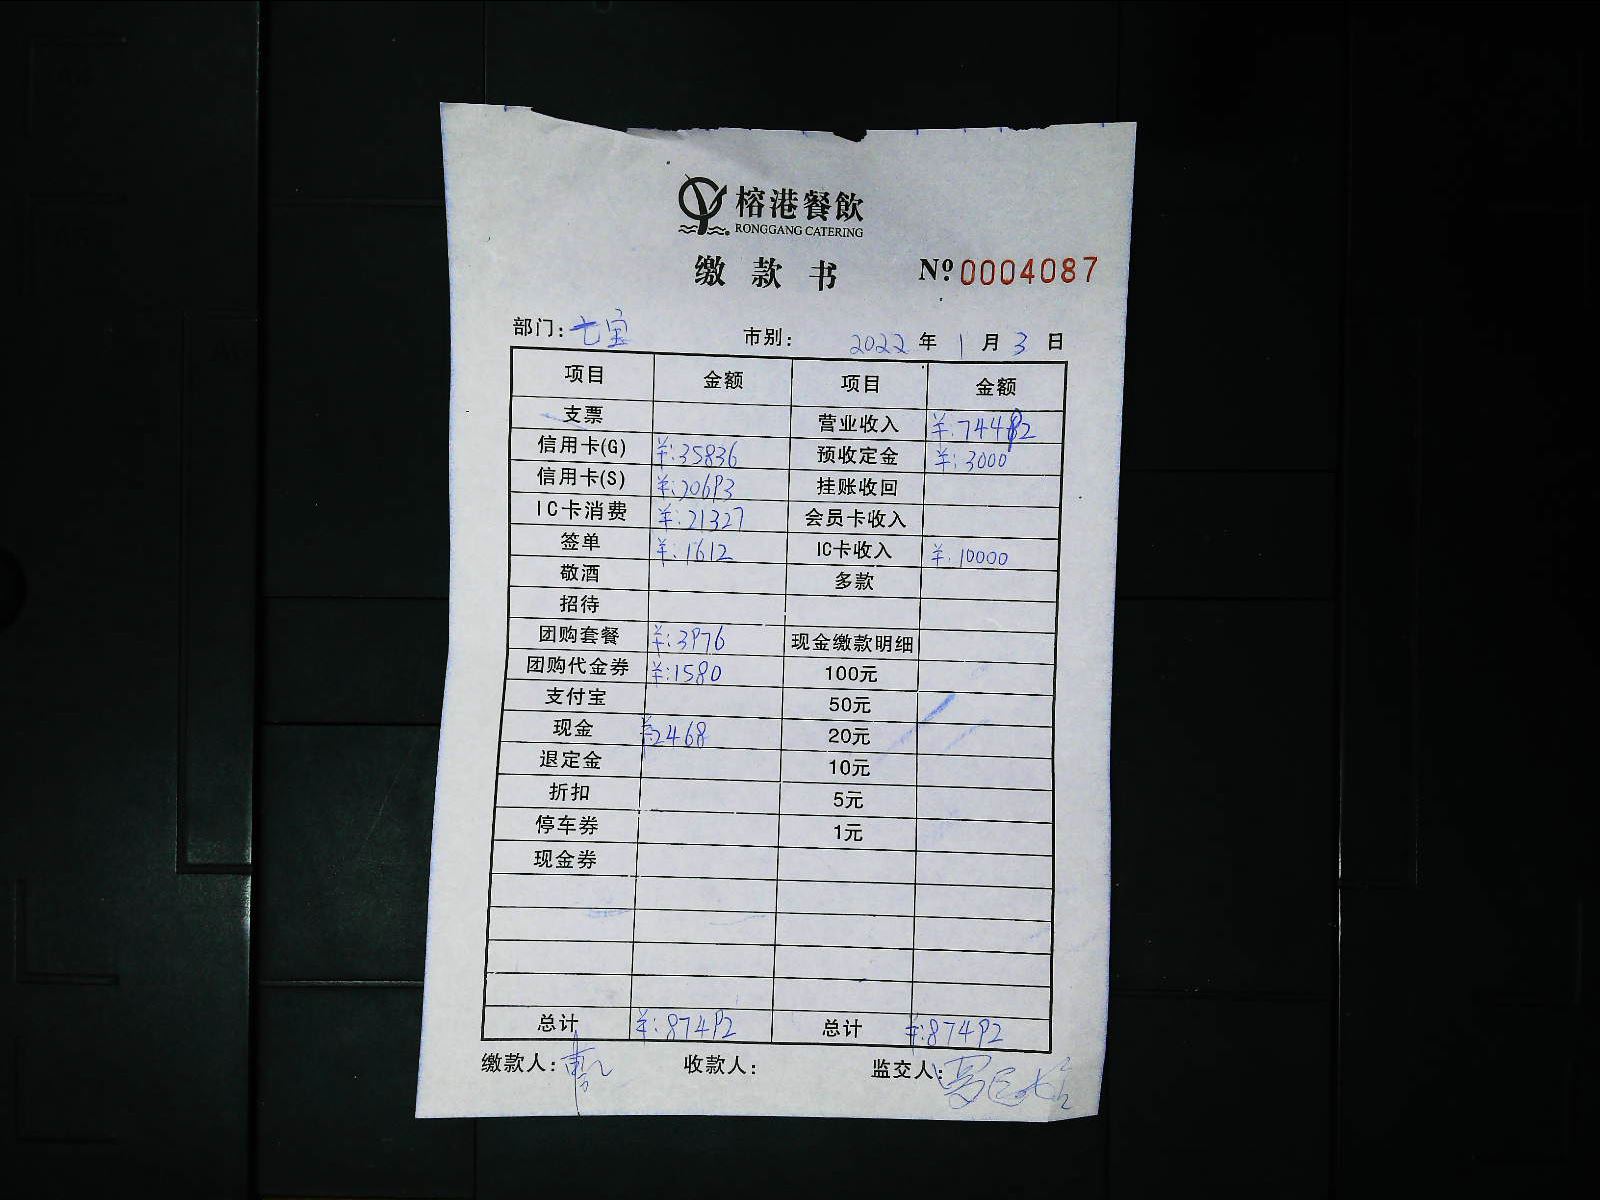 榕港餐飲
RONGGANG CATERING
缴款书 Nº 0004087
部门: 七宝 市别: 2022 年 1 月 3 日
项目 金额 项目 金额
支票 营业收入 ¥:74492
信用卡(G) ¥:35836 预收定金 ¥:3000
信用卡(S) ¥:20693 挂账收回
IC卡消费 ¥:21327 会员卡收入
签单 ¥:1612 IC卡收入 ¥:10000
敬酒 多款
招待
团购套餐 ¥:3976 现金缴款明细
团购代金券 ¥:1580 100元
支付宝 50元
现金 ¥2468 20元
退定金 10元
折扣 5元
停车券 1元
现金券
总计 ¥:87492 总计 ¥:87492
缴款人: 收款人: 监交人: